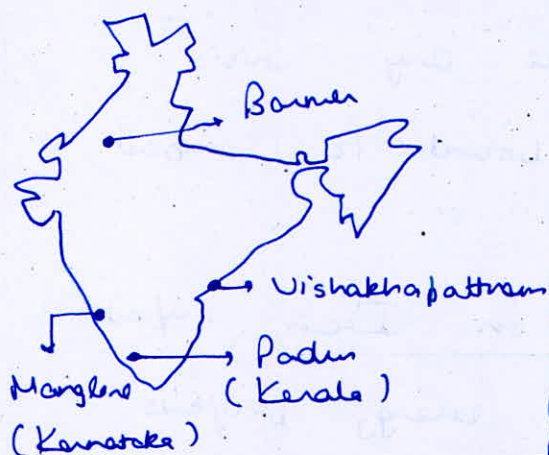 Barmer
Vishakhapattnam
Padur
(Kerala)
Manglore
(Karnataka)